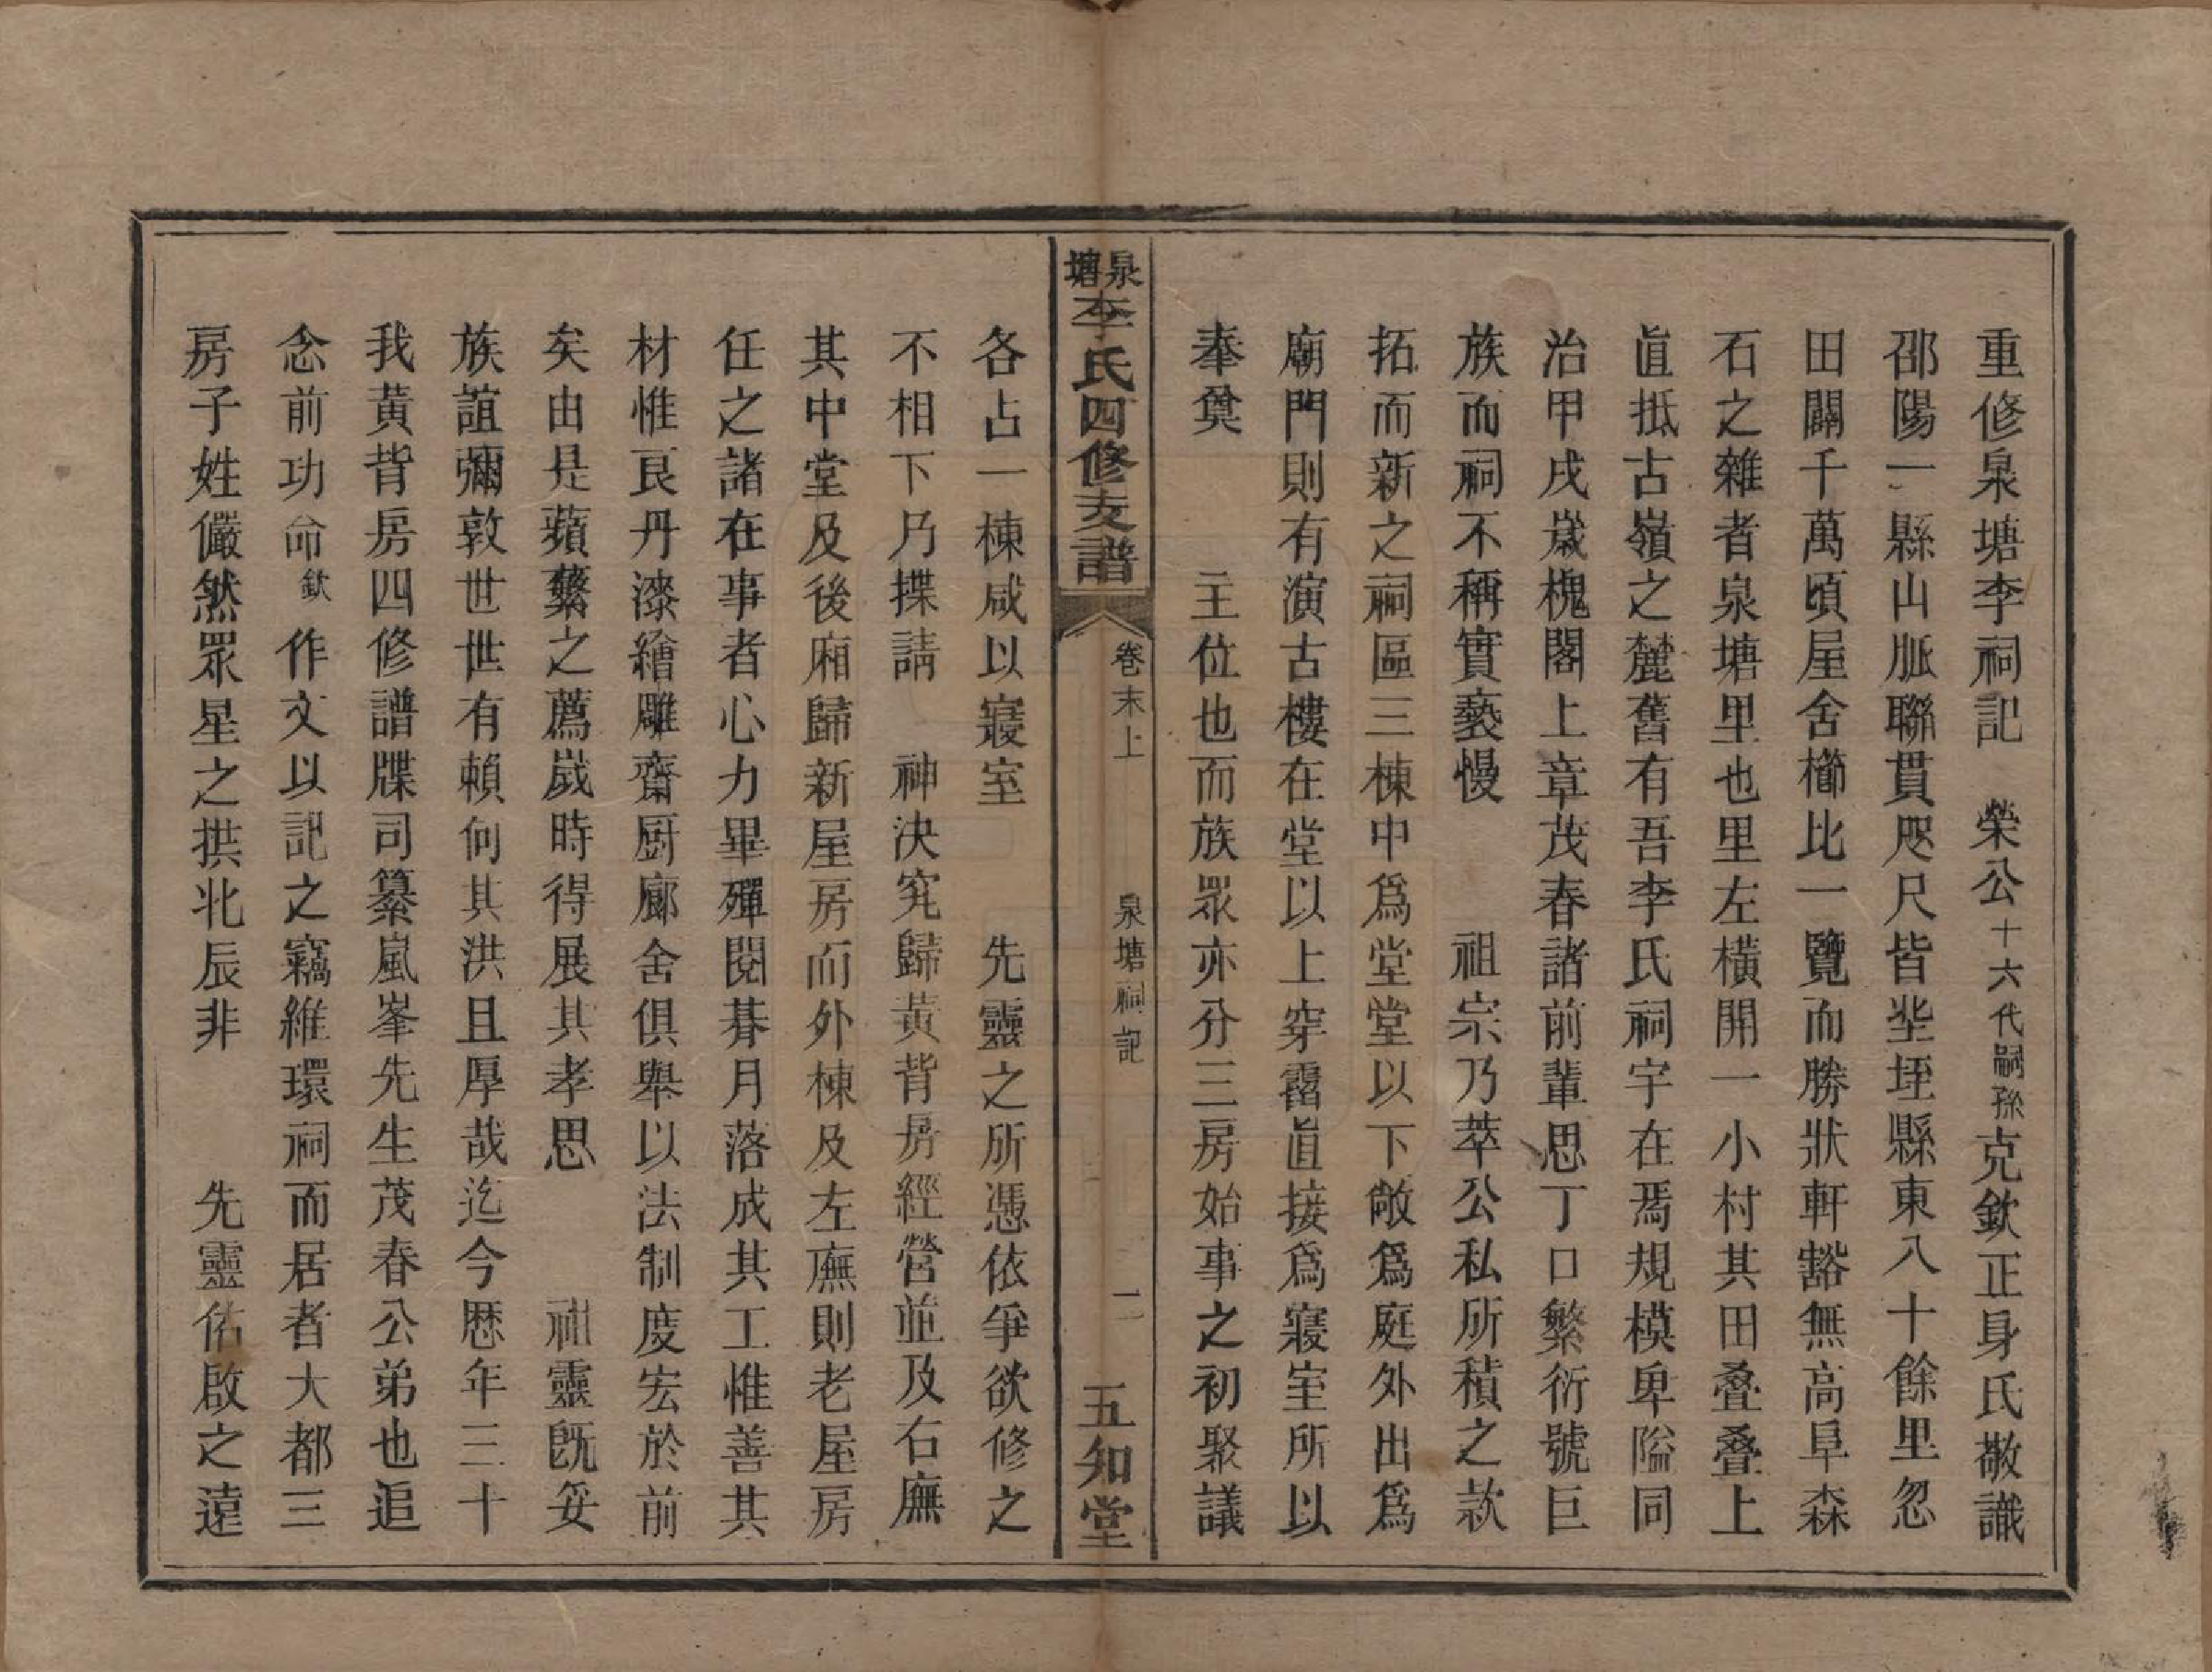 重修泉塘李祠記　榮公十六代嗣孫克欽正身氏敬識
邵陽一縣山脈聯貫咫尺皆坐垤縣東八十餘里忽
田闢千萬頃屋舍櫛比一覽而勝狀軒豁無高阜森
石之雜者泉塘里也里左橫開一小村其田叠叠上
直抵古嶺之麓舊有吾李氏祠宇在焉規模卑隘同
治甲戌歲槐閣上章茂春諸前輩思丁口繁衍號巨
族而祠不稱實褻慢　祖宗乃萃公私所積之款
拓而新之祠區三棟中爲堂堂以下敞爲庭外出爲
廟門則有演古樓在堂以上穿霤直接爲寢室所以
奉奠　主位也而族眾亦分三房始事之初聚議
泉塘李氏四修支譜　卷末上　泉塘祠記　一　五知堂
各占一棟咸以寢室　先靈之所憑依爭欲修之
不相下乃揲請　神決究歸黃背房經營並及右廡
其中堂及後廂歸新屋房而外棟及左廡則老屋房
任之諸在事者心力畢殫閱朞月落成其工惟善其
材惟良丹漆繪雕齋厨廊舍俱舉以法制度宏於前
矣由是蘋蘩之薦歲時得展其孝思　祖靈旣妥
族誼彌敦世世有賴何其洪且厚哉迄今歷年三十
我黃背房四修譜牒司纂嵐峯先生茂春公弟也追
念前功命欽作文以記之竊維環祠而居者大都三
房子姓儼然眾星之拱北辰非　先靈佑啟之遠